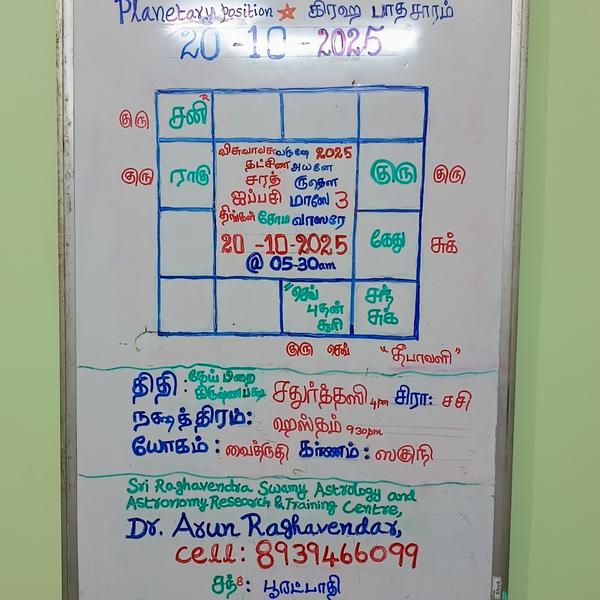 Planetary position ☆ கிரஹ பாதசாரம்
20-10-2025
குரு
சனி R
குரு
ராகு
விசுவாவசுவருஷே 2025
தட்சிண அயனே
சரத் ருதௌ
ஐப்பசி மாஸே 3
திங்கள் சோம வாஸரே
20-10-2025
@ 05-30am
குரு
குரு
கேது
சுக்
செவ்
புதன்
சூரி
சந்
சுக்
குரு செவ் "தீபாவளி"
திதி : தேய் பிறை
கிருஷ்ணபக்ஷ
சதுர்த்தஸி 4pm சிரா: சசி
நக்ஷத்திரம்: ஹஸ்தம் 930pm
யோகம் : வைத்ருதி கர்ணம் : ஸகுநி
Sri Raghavendra Swamy Astrology and
Astronomy Research & Training Centre,
Dr. Arun Raghavendar,
Cell: 8939466099
சந் 8 : பூரட்டாதி